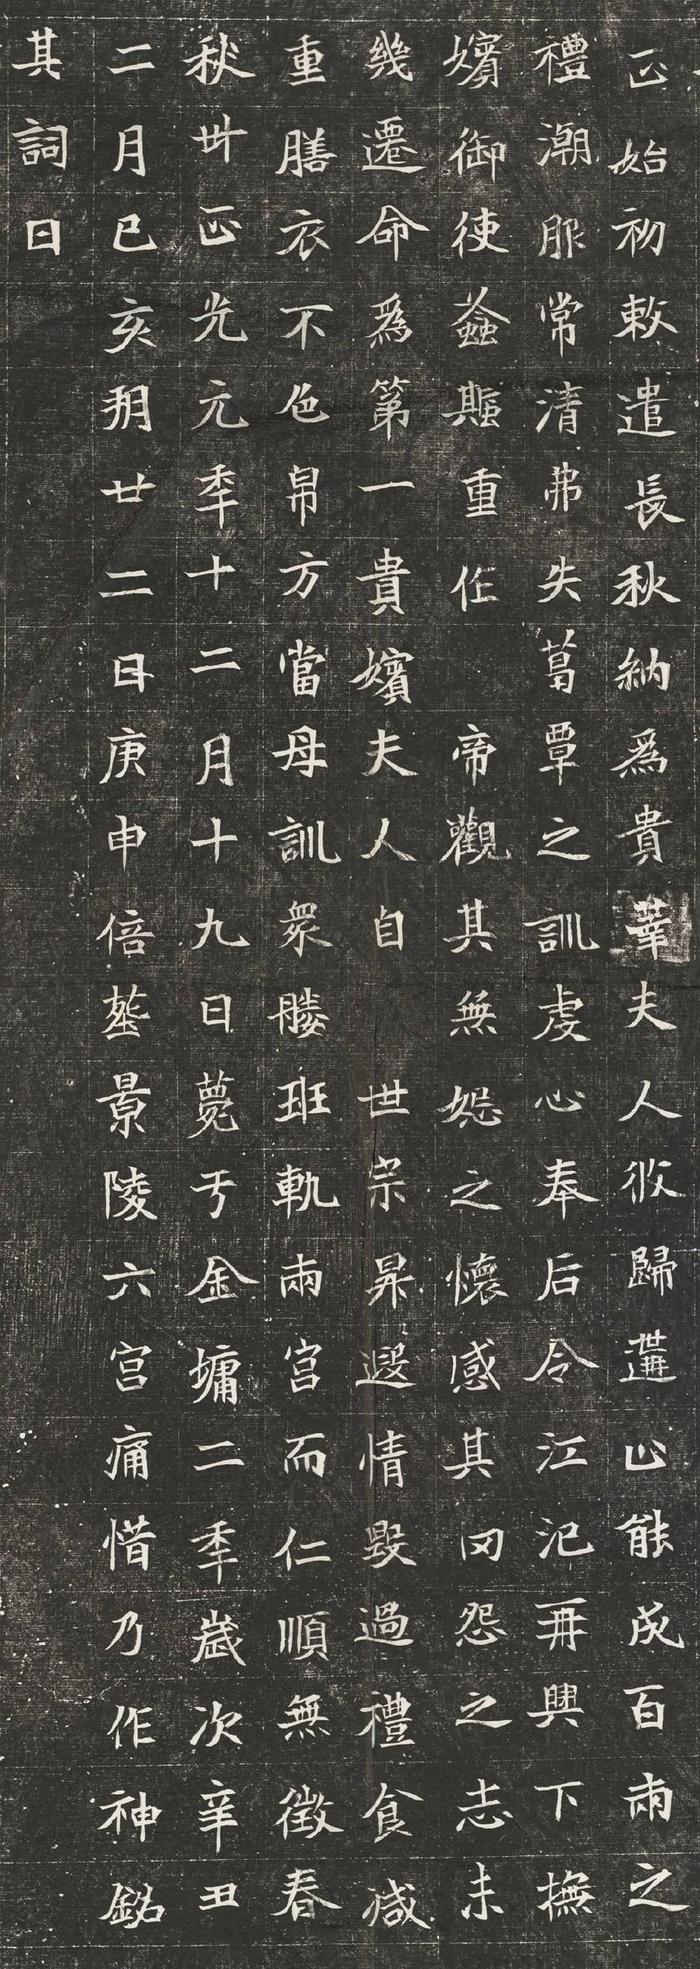 正始初敕遣長秋納為貴華夫人攸歸遘止能成百兩之
禮潮服常清弗失葛覃之訓虔心奉后令江汜再興下撫
嬪御使螽斯重作帝觀其無妬之懷感其罔怨之志未
幾遷命為第一貴嬪夫人自世宗昇遐情毀過禮食減
重膳衣不色帛方當母訓眾媵班軌兩宮而仁順無徵春
秋卅正光元年十二月十九日薨于金墉二年歲次辛丑
二月己亥朔廿二日庚申倍塟景陵六宮痛惜乃作神銘
其詞曰